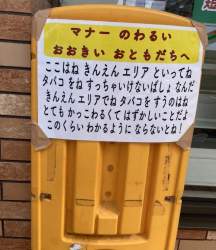 マナー のわるい
おおきい おともだちへ
ここはね きんえん エリア といってね
タバコ をね すっちゃいけないばしょ なんだ
きんえん エリアでね タバコ をすうのはね
とても かっこわるくて はずかしいことだよ
このくらい わかるように ならないとね!